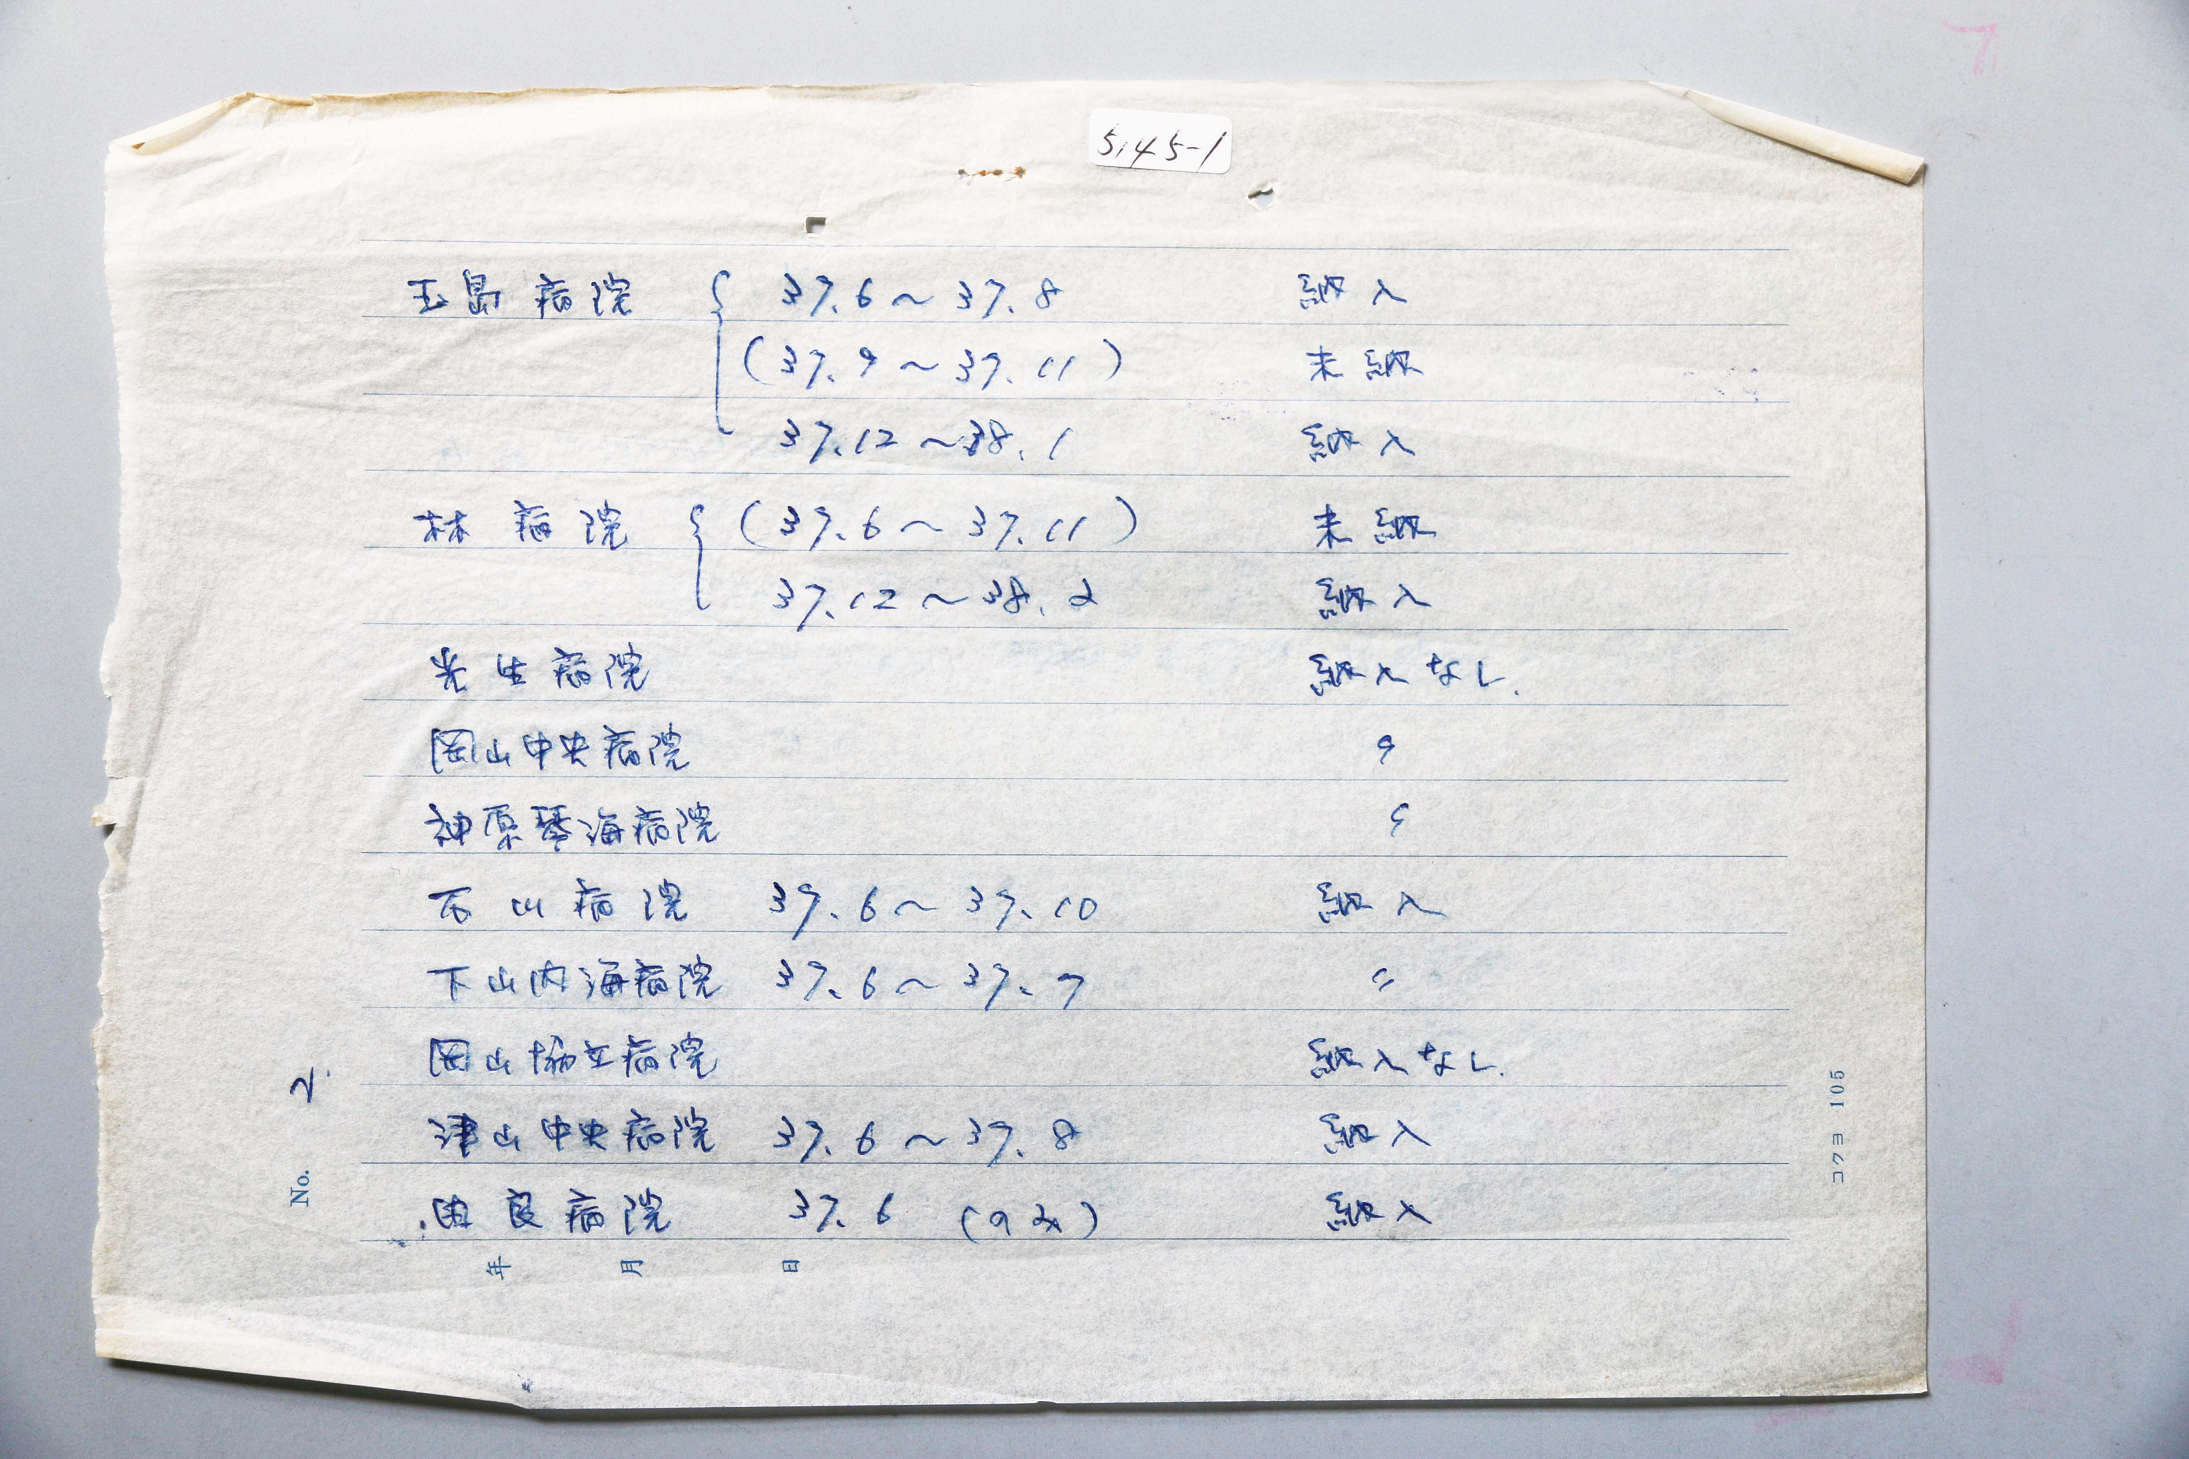 S.45-1
玉島病院 37.6～37.8 納入
(37.9～37.11) 未納
37.12～38.1 納入
林病院 (37.6～37.11) 未納
37.12～38.2 納入
光生病院 納入なし.
岡山中央病院 〃
神原琴海病院 〃
石山病院 37.6～37.10 納入
下山内海病院 37.6～37.7 〃
岡山協立病院 納入なし.
津山中央病院 37.6～37.8 納入
由良病院 37.6 (のみ) 納入
No. 2.
年 月 日
コクヨ 105